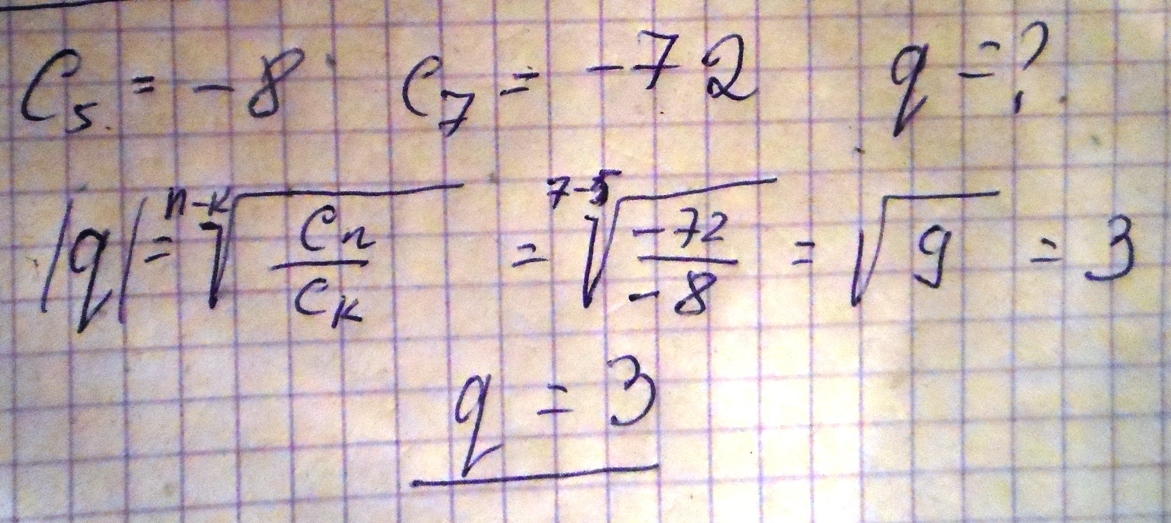 C₅ = -8 C₇ = -72 q = ?
|q| = ⁿ⁻ᵏ√(Cₙ/Cₖ) = ⁷⁻⁵√(-72/-8) = √9 = 3
q = 3